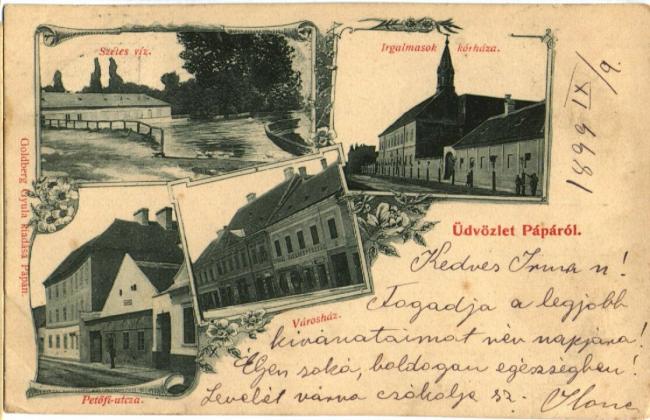 Széles víz.
Irgalmasok kórháza.
1899 IX/9.
Goldberg Gyula kiadása Pápán.
Üdvözlet Pápáról.
Városház.
Petőfi-utcza.
Kedves Irma n!
Fogadja a legjobb
kivánataimat név napjára!
Éljen soká, boldogan egészségben!
Levelét várva csókolja sz. Ilona